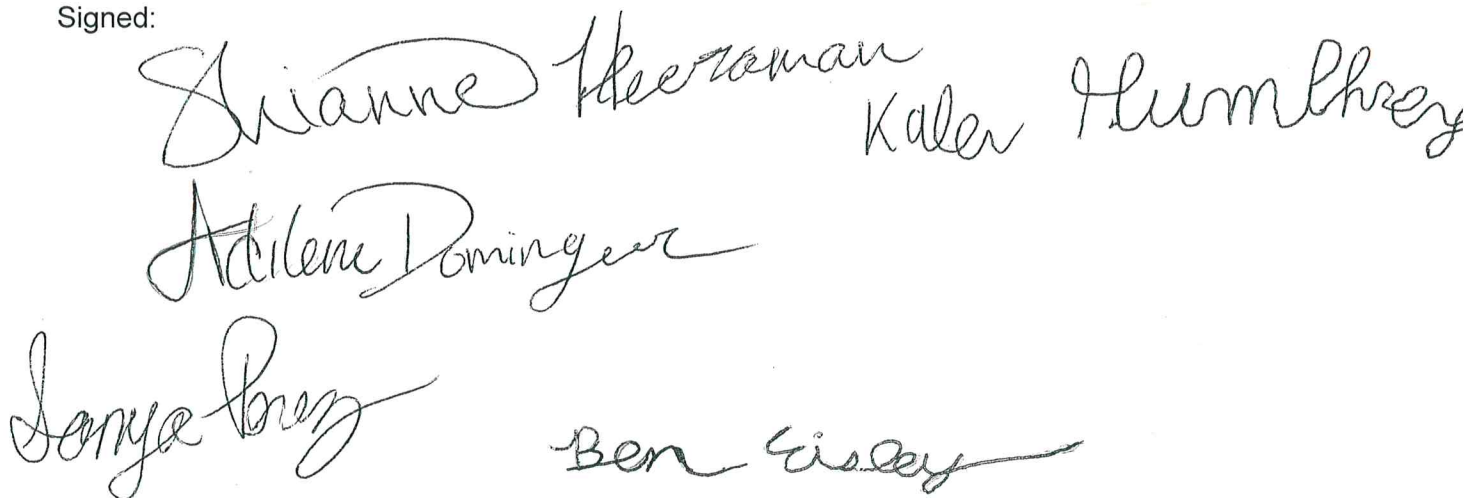 Signed:
Shianne Heeraman
Kalev Humphrey
Adilene Dominguez
Sonya Perez
Ben Eisley